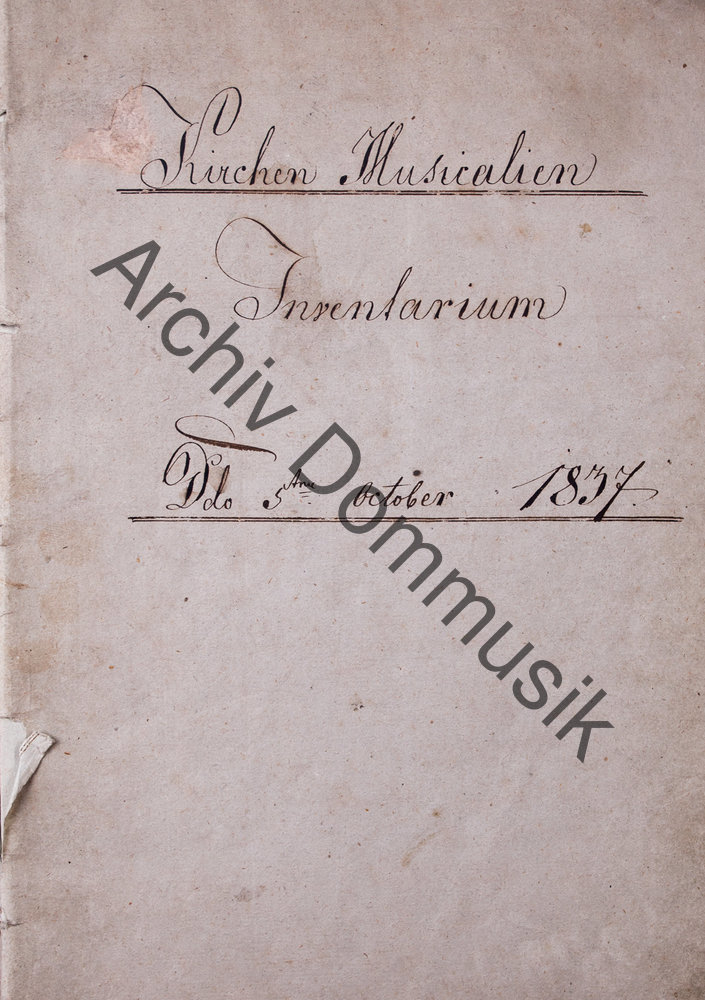 Kirchen Musicalien
Inventarium
Ddo 5 October 1837.
Archiv Dommusik